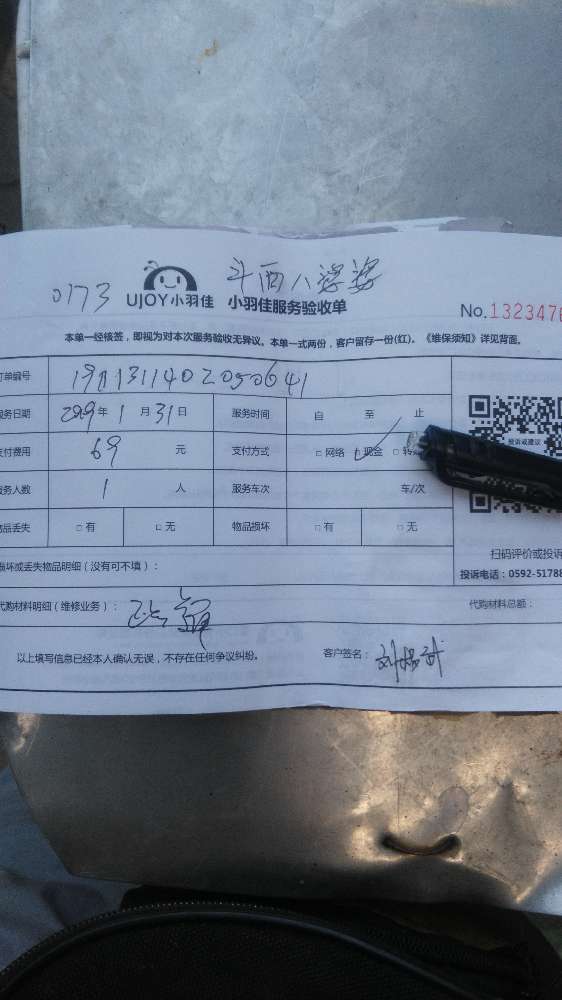 斗西八婆婆
0173 UJOY小羽佳 小羽佳服务验收单
No.1323476
本单一经核签，即视为对本次服务验收无异议。本单一式两份，客户留存一份(红)。《维保须知》详见背面。
订单编号 1911311402050641
服务日期 2019年1月31日 服务时间 自 至 止
支付费用 69 元 支付方式 □网络 □现金 □转
服务人数 1 人 服务车次 车/次
投诉或建议
物品丢失 □有 □无 物品损坏 □有 □无
扫码评价或投诉
损坏或丢失物品明细（没有可不填）：
投诉电话：0592-51788
代购材料明细（维修业务）： 代购材料总额：
以上填写信息已经本人确认无误，不存在任何争议纠纷。 客户签名：